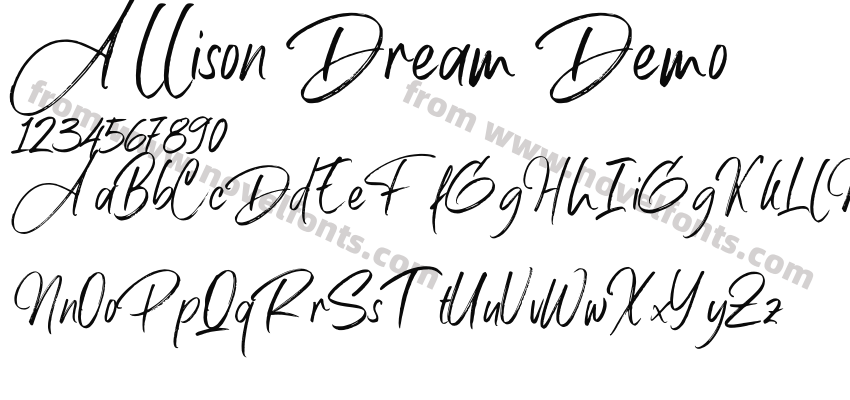 Allison Dream Demo
1234567890
AaBbCcDdEeFfGgHhIiGgKkLlM
NnOoPpQqRrSsTtUuVvWwXxYyZz
from www.novelfonts.com
from www.novelfonts.com